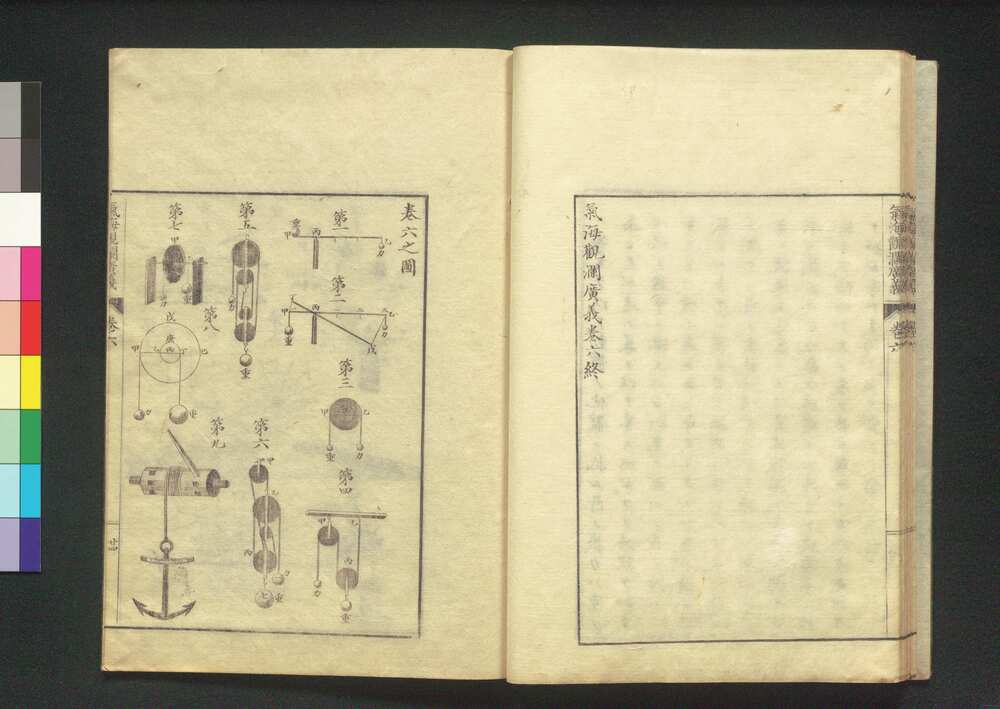 氣海觀瀾廣義
卷六
氣海觀瀾廣義卷六終
卷六之圖
第一
重
甲
丙
乙
力
第二
丙
乙
甲
力
重
戊
第三
甲
乙
重
力
第四
甲
乙
丙
力
重
第五
力
重
第六
甲
乙
丙
力
重
第七
甲
重
力
第八
戊
庚
甲
丙
丁
力
重
第九
氣海觀瀾廣義
卷六